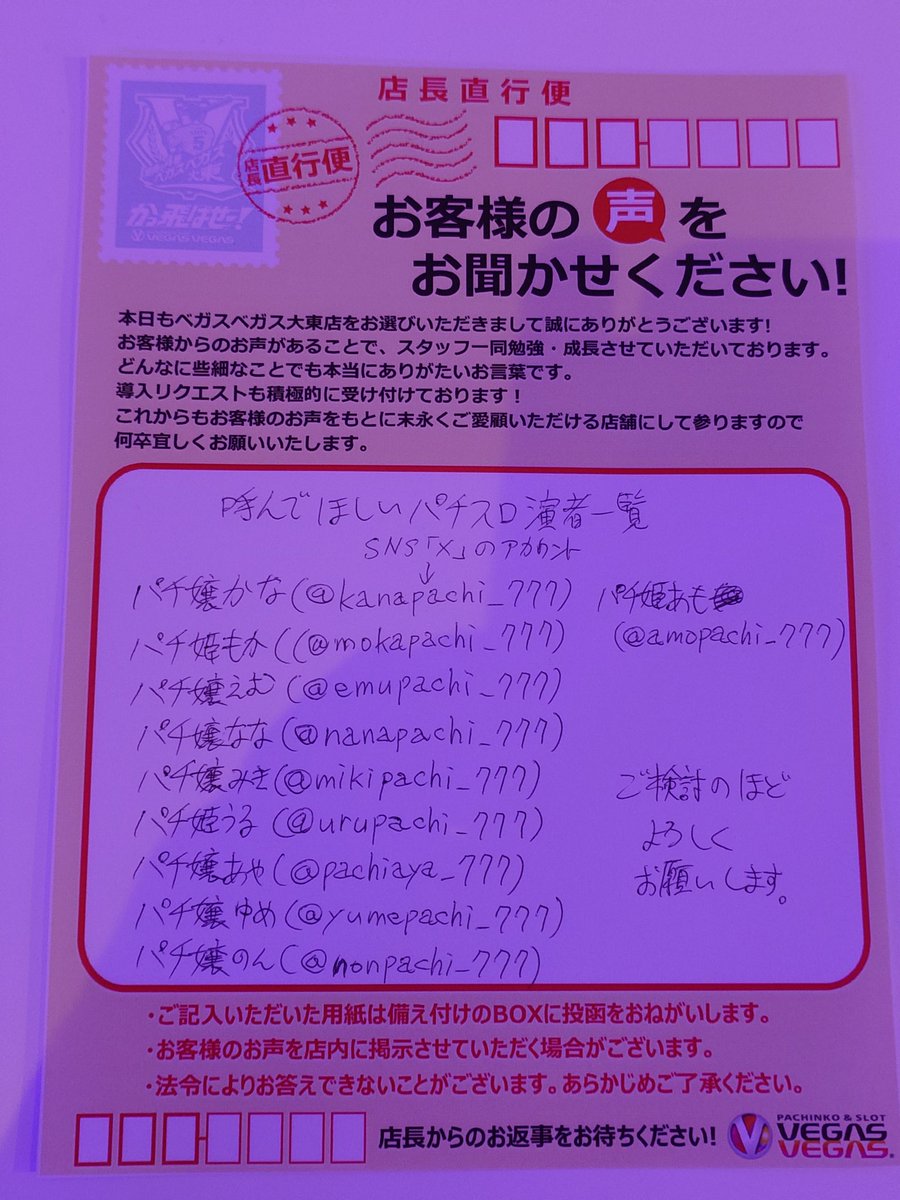 店長直行便
店長直行便
かっ飛ばせー!
VEGAS VEGAS
お客様の声を
お聞かせください!
本日もベガスベガス大東店をお選びいただきまして誠にありがとうございます!
お客様からのお声があることで、スタッフ一同勉強・成長させていただいております。
どんなに些細なことでも本当にありがたいお言葉です。
導入リクエストも積極的に受け付けております!
これからもお客様のお声をもとに末永くご愛顧いただける店舗にして参りますので
何卒宜しくお願いいたします。
呼んでほしいパチスロ演者一覧
SNS「X」のアカウント
↓
パチ嬢かな(@kanapachi_777)
パチ姫もか((@mokapachi_777)
パチ嬢えむ(@emupachi_777)
パチ嬢なな(@nanapachi_777)
パチ嬢みき(@mikipachi_777)
パチ姫うる(@urupachi_777)
パチ嬢あや(@pachiaya_777)
パチ嬢ゆめ(@yumepachi_777)
パチ嬢のん(@nonpachi_777)
パチ姫あも
(@amopachi_777)
ご検討のほど
よろしく
お願いします。
・ご記入いただいた用紙は備え付けのBOXに投函をおねがいします。
・お客様のお声を店内に掲示させていただく場合がございます。
・法令によりお答えできないことがございます。あらかじめご了承ください。
店長からのお返事をお待ちください!
PACHINKO & SLOT
VEGAS
VEGAS.